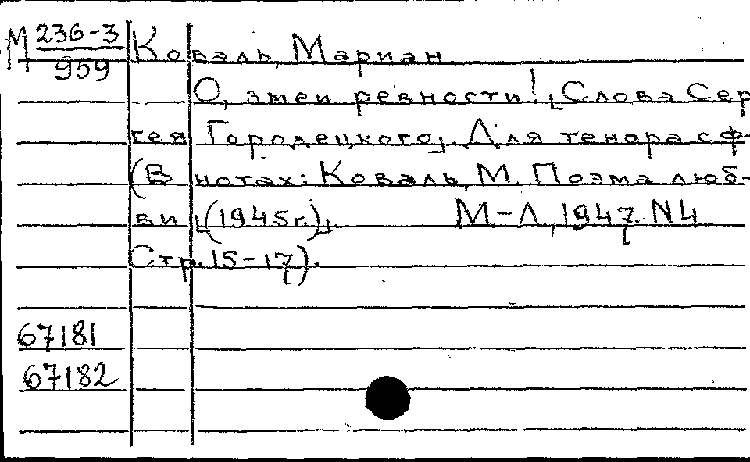 М 236-3/959 Коваль, Мариан
О, змеи ревности! [Слова Сер-
гея Городецкого]. Для тенора с ф
(В нотах: Коваль, М. Поэма люб-
ви [(1945г.)]. М-Л, 1947. N4
Стр. 15-17).
67181
67182